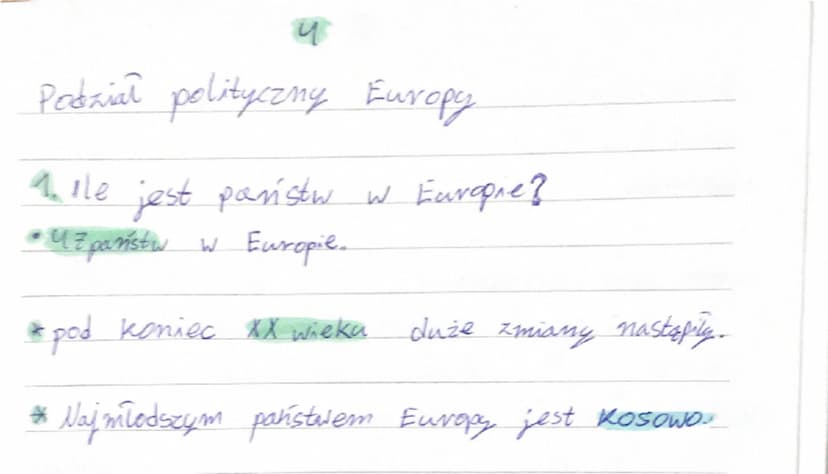 4
Podział polityczny Europy
1. Ile jest państw w Europie?
• 47 państw w Europie.
* pod koniec XX wieku duże zmiany nastąpiły.
* Najmłodszym państwem Europy jest Kosowo.